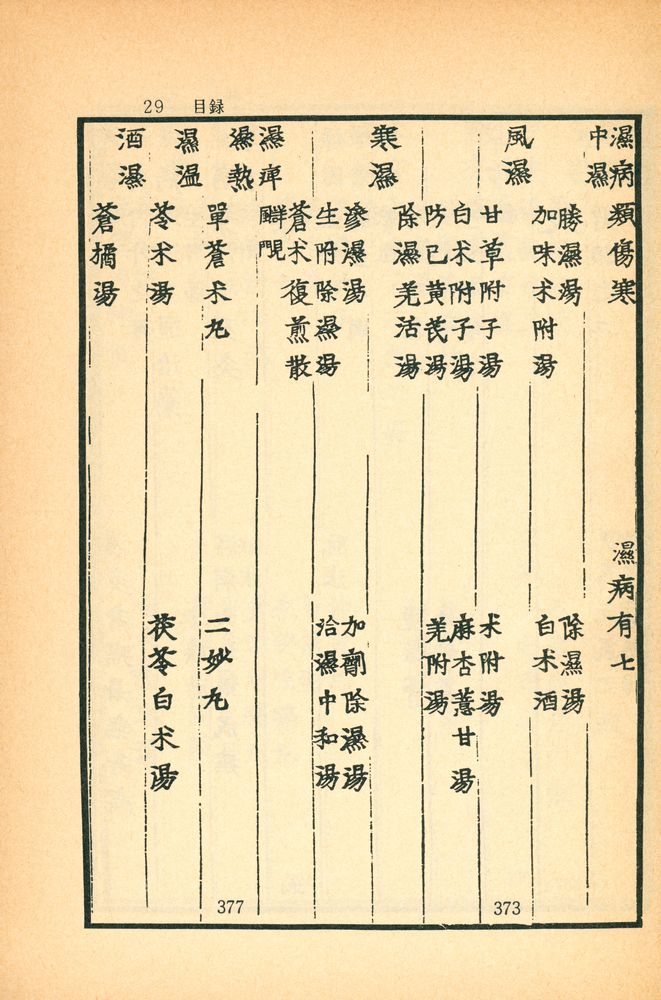 29 目録
濕病類傷寒 濕病有七
中濕
勝濕湯 除濕湯
加味朮附湯 白朮酒
風濕
甘草附子湯 朮附湯
白朮附子湯 麻杏薏甘湯
防己黄芪湯 羌附湯
除濕羌活湯
寒濕
滲濕湯 加劑除濕湯
生附除濕湯 治濕中和湯
蒼朮復煎散
濕痺 詳見
濕熱
單蒼朮丸 二妙丸
濕温
苓朮湯 茯苓白朮湯
酒濕
蒼橘湯
373
377